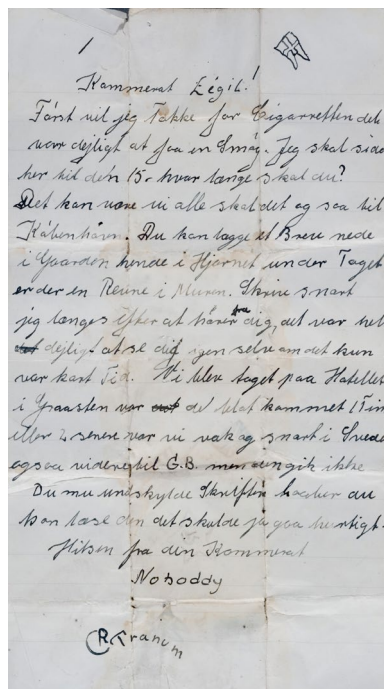 1
Kammerat Légil!
Först vil jeg Takke for Cigarretten det
var dejligt at faa en Smøg. Jeg skal sidde
her til den 15- hvor længe skal du?
Det kan være vi alle skal det og saa til
Københáven. Du kan lægge et Breve nede
i Gaarden hende i Hjørnet under Taget
er der en Revne i Muren. Skriv snart
jeg længes efter at hører fra dig, det var hel
dejligt at se dig igen selv om det kun
var kort Tid. Vi blev taget paa Hotellet
i Graasten var det blot kommet 1 Tim
eller 2 senere var vi vak og snart i Sverig
ogsaa videre til G.B. men den gik ikke
Du maa undskylde Skriften haaber du
kan læse den det skulde jo gaa hurtigt.
Hilsen fra din Kammerat
Noboddy
R Tranum